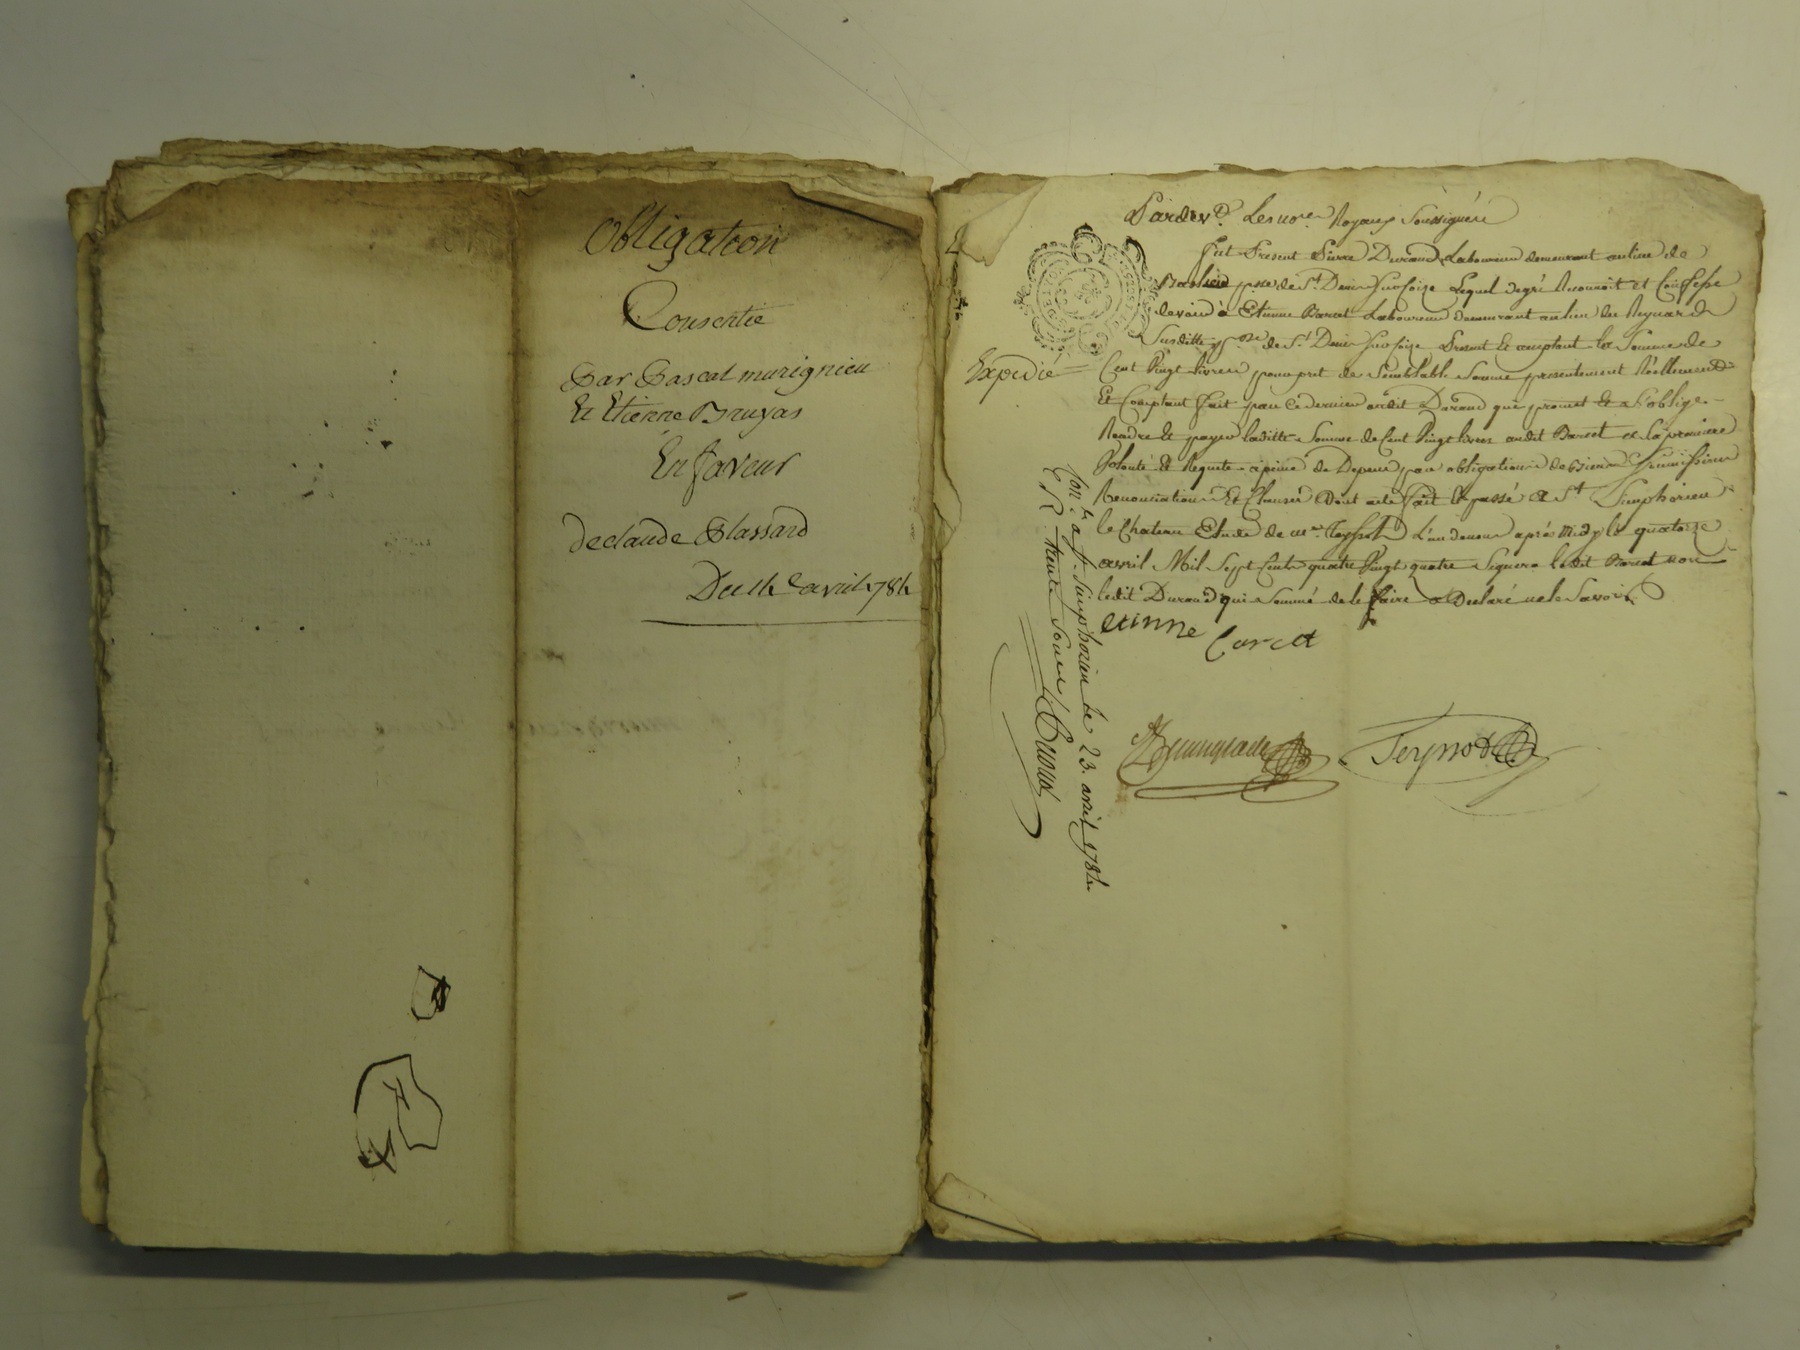 Obligation
Consentie
Par Pascal murignieu
Et Etienne Bruyas
En faveur
de claude Plassard
Du 14 avril 1784
Pardevt. Les nores. Royaux Soussignés
fut Present Pierre Durand Laboureur demeurant au lieu de
psse. de St. Denis Lequel degré Reconnoit et Confesse
devoir à Etienne Barcet Laboureur demeurant au lieu du Reynard
Susditte psse. de St. Denis Present Et acceptant la Somme de
Expedié
Cent Vingt livres pour pret de Semblable Somme presentement Réellement
Et Comptant fait par Ce dernier audit Durand qui promet Et s'oblige
Rendre Et payer laditte Somme de Cent Vingt livres audit Barcet a Sa premiere
Volonté Et Requete a peine de Depens, par obligation de biens Soumissions
Renonciations Et Clauses Dont acte fait Et passé a St. Simphorien
le Chateau Etude de me. Teyssot L'un deux après midy le quatorze
avril Mil Sept Cents quatre Vingt quatre Signera ledit Barcet non
ledit Durand qui Sommé de le faire a Declaré ne le Savoir
etienne barcet
Teyssot
Con.le a St. Simphorien le 23. avril 1784
R. trente Sous